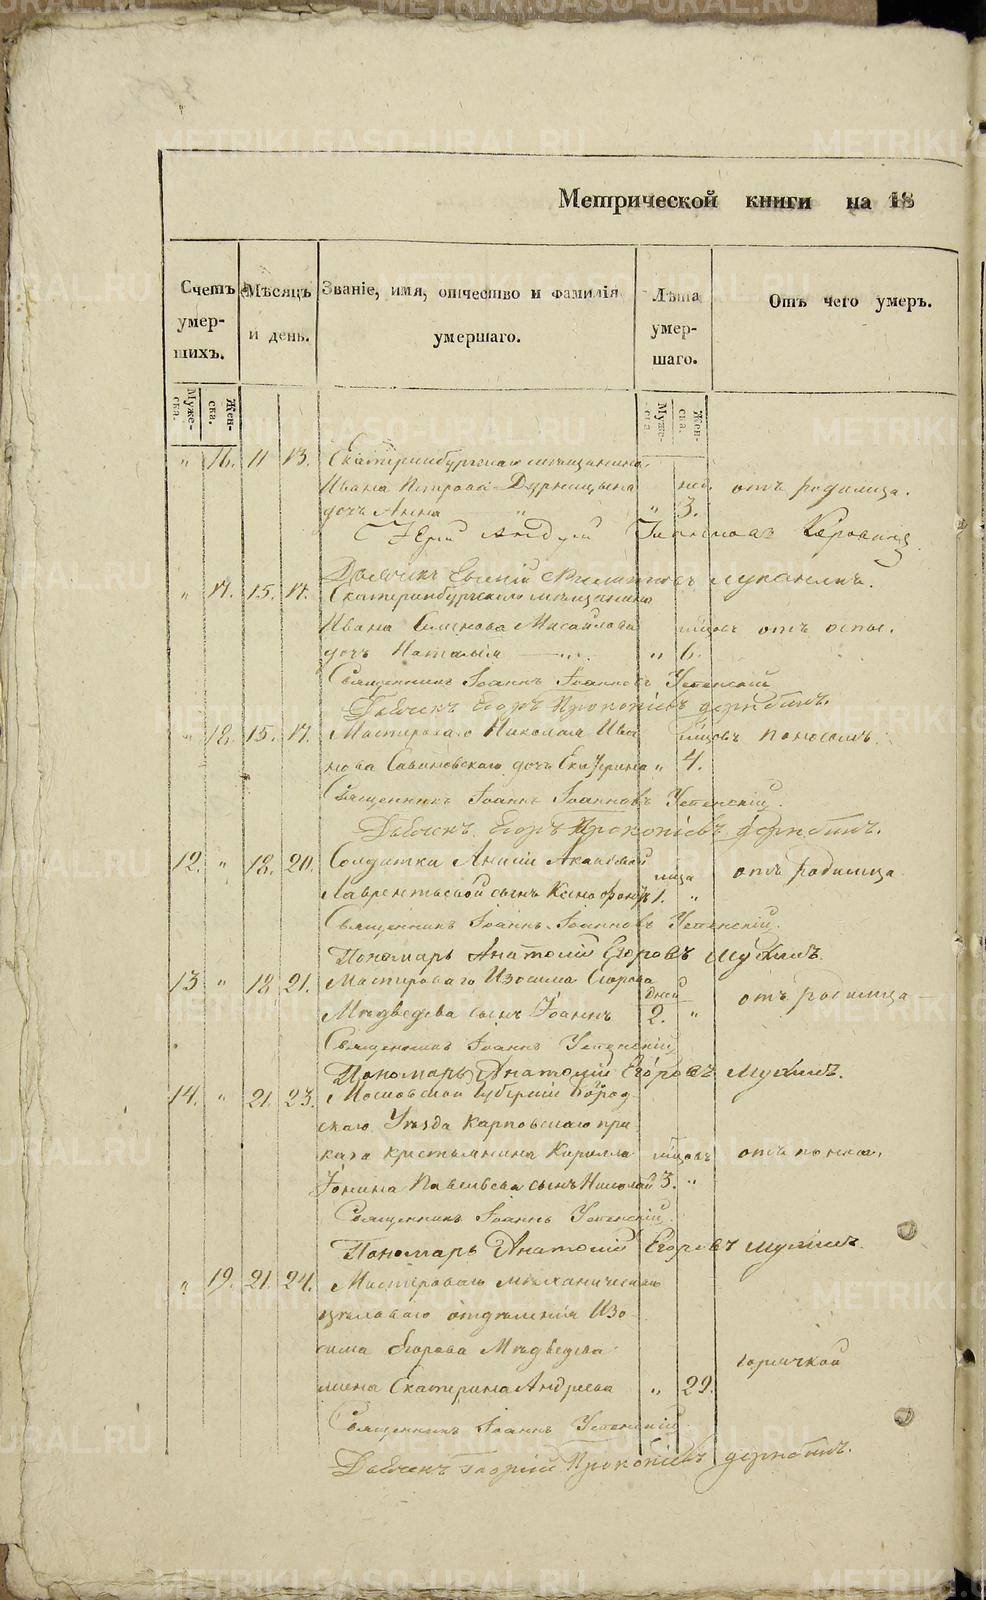 METRIKI.GASO-URAL.RU
Метрической книги на 18
Счетъ умер- шихъ.
Мѣсяцъ и день.
Званіе, имя, отчество и фамилія умершаго.
Лѣта умер- шаго.
Отъ чего умеръ.
Муже- ска.
Жен- ска.
Муже- ска.
Жен- ска.
" 16. 11 13. Екатеринбургскаго мѣщанина
Ивана Петрова нед. отъ родимца.
дочь Анна " " 3.
Іерей
Дьячикъ Евгеній
" 17. 15. 17. Екатеринбургскаго мѣщанина
Ивана Семенова Михайлова мѣцовъ отъ оспы.
дочь Наталья " 6.
Священникъ Іоаннъ Іоанновъ Успенскій
Дьячекъ Егоръ Прокопіевъ
" 18. 15. 17. Мастероваго Николая Ива мѣцовъ поносомъ.
нова дочь Екатерина " 4.
Священникъ Іоаннъ Іоанновъ Успенскій.
Дьячекъ Егоръ Прокопіевъ
12. " 18. 20. Солдатки мѣца отъ родимца
Лаврентьевой сынъ Ксенофонтъ 1. "
Священникъ Іоаннъ Іоанновъ Успенскій.
Пономарь Анатолій Егоровъ
13 " 18 21. Мастероваго Изосима Егорова дней отъ родимца
Мѣдведева сынъ Іоаннъ 2. "
Священникъ Іоаннъ Успенскій
Пономарь Анатолій Егоровъ
14. " 21. 23. Московской губерніи
скаго Уѣзда Карповскаго при
каза крестьянина Кирилла мѣцовъ отъ поноса.
сынъ Николай 3. "
Священникъ Іоаннъ Успенскій
Пономарь Анатолій Егоровъ
" 19. 21. 24. Мастероваго механическаго
отдѣленія Изо-
сима Егорова Мѣдведева горячкой
жена Екатерина Андреева " 29.
Священникъ Іоаннъ Успенскій
Дьячекъ Георгій Прокопіевъ